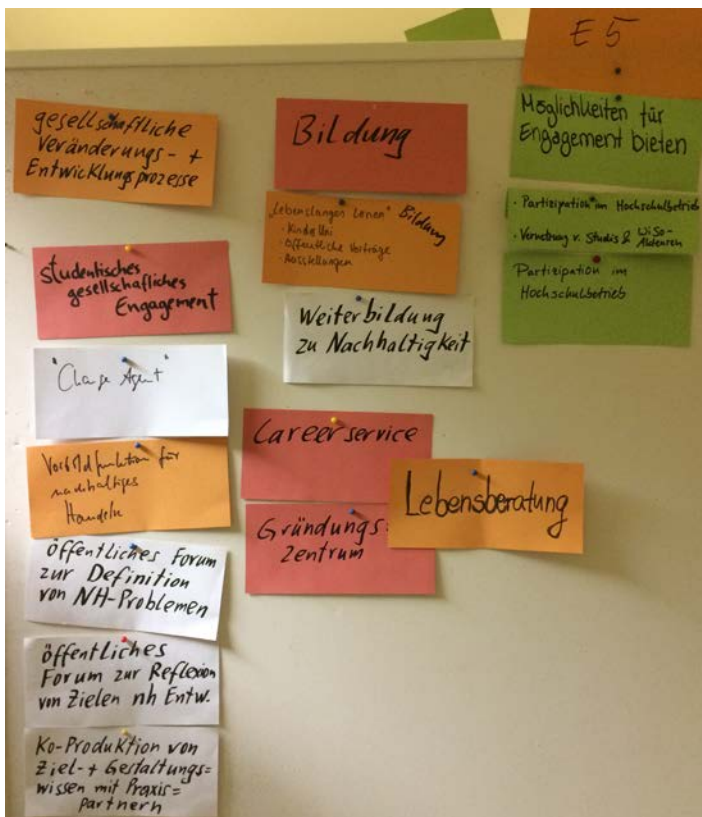 E 5
gesellschaftliche
Veränderungs- +
Entwicklungsprozesse
Studentisches
gesellschaftliches
Engagement
"Change Agent"
Vorbildfunktion für
nachhaltiges
Handeln
öffentliches Forum
zur Definition
von NH-Problemen
öffentliches
Forum zur Reflexion
von Zielen nh Entw.
Ko-Produktion von
Ziel- + Gestaltungs=
wissen mit Praxis=
partnern
Bildung
„Lebenslanges Lernen" Bildung
· Kinderuni
· Öffentliche Vorträge
· Ausstellungen
Weiterbildung
zu Nachhaltigkeit
Careerservice
Gründungs=
zentrum
Lebensberatung
Möglichkeiten für
Engagement bieten
· Partizipation im Hochschulbetrieb
· Vernetzung v. Studis & WiSo-
Akteuren
Partizipation im
Hochschulbetrieb